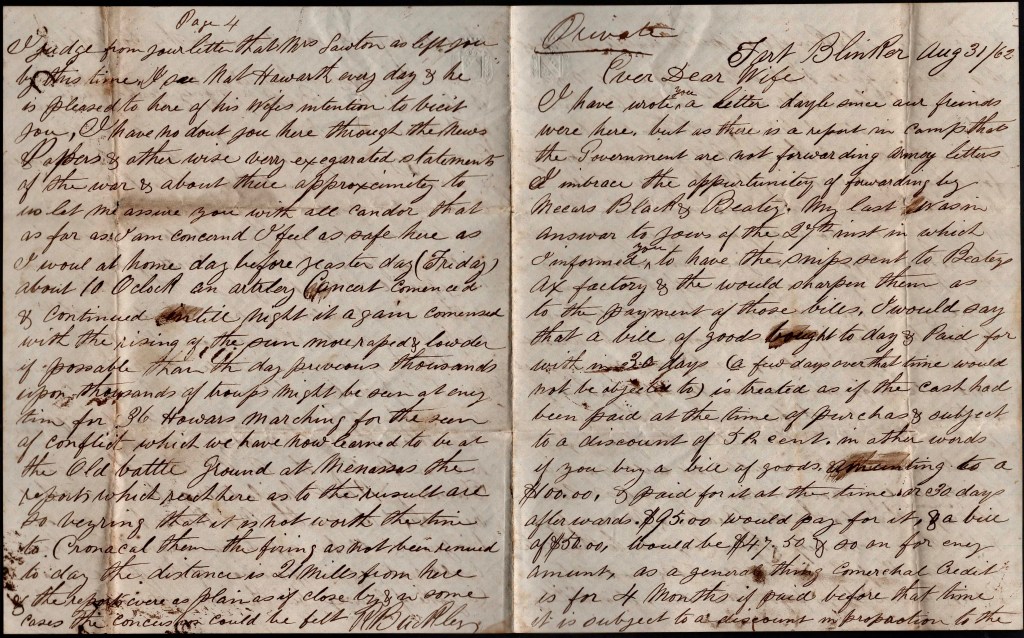 Page 4
I judge from your letter that Mrs Lawton as left you
by this time. I see Nat Howarth every day & he
is pleased to here of his Wifes intention to vicit
you, I have no dout you here through the News
Papers & other wise verry exegarated statements
of the war & about there approximety to
us let me assure you with all candor that
as far as I am concernd I feel as safe here as
I woul at home day before yester day (Friday)
about 10 Oclock an artilery Concert comenced
& continued untill night it again comensed
with the rising of the sun more raped & lowder
if possable than the day previous thousands
upon thousands of troups might be seen at eny
tim for 36 Howars marching for the seen
of conflict which we have now learned to be at
the Old battle ground at Menassas the
reports which reach here as to the rusult are
so veyring that it as not worth the time
to Cronacal them the firing as not been renued
to day the distance is 21 Mills from here
& the reports were as plain as if close by & in some
cases the concussion could be felt
Private
Fort Blinker Aug 31/62
Ever Dear Wife
I have wrote you a letter dayle since our freinds
were here, but as there is a report in camp that
the Government are not forwarding armey letters
I imbrace the oppurtunitey of fowarding by
Mecurs Black & Beatey. My last was in
answer to yours of the 27th inst in which
I informed you to have the snips sent to Beateys
Ax factory & the would sharpen them as
to the payment of those bills, I would say
that a bill of goods bought to day & Paid for
with in 30 days (a few days over that time would
not be objected to) is treated as if the cash had
been paid at the time of purchas & subject
to a discount of 5 P cent. in other words
if you buy a bill of goods, amunting to a
$100.00, & paid for it at the time or 30 days
afterwards. $95.00 would pay for it, & a bill
of $50.00, would be $47.50 & so on for eney
amunt, as a general thing Comerchal Credit
is for 4 Months if paid before that time
it is subject to a discount in propaction to the